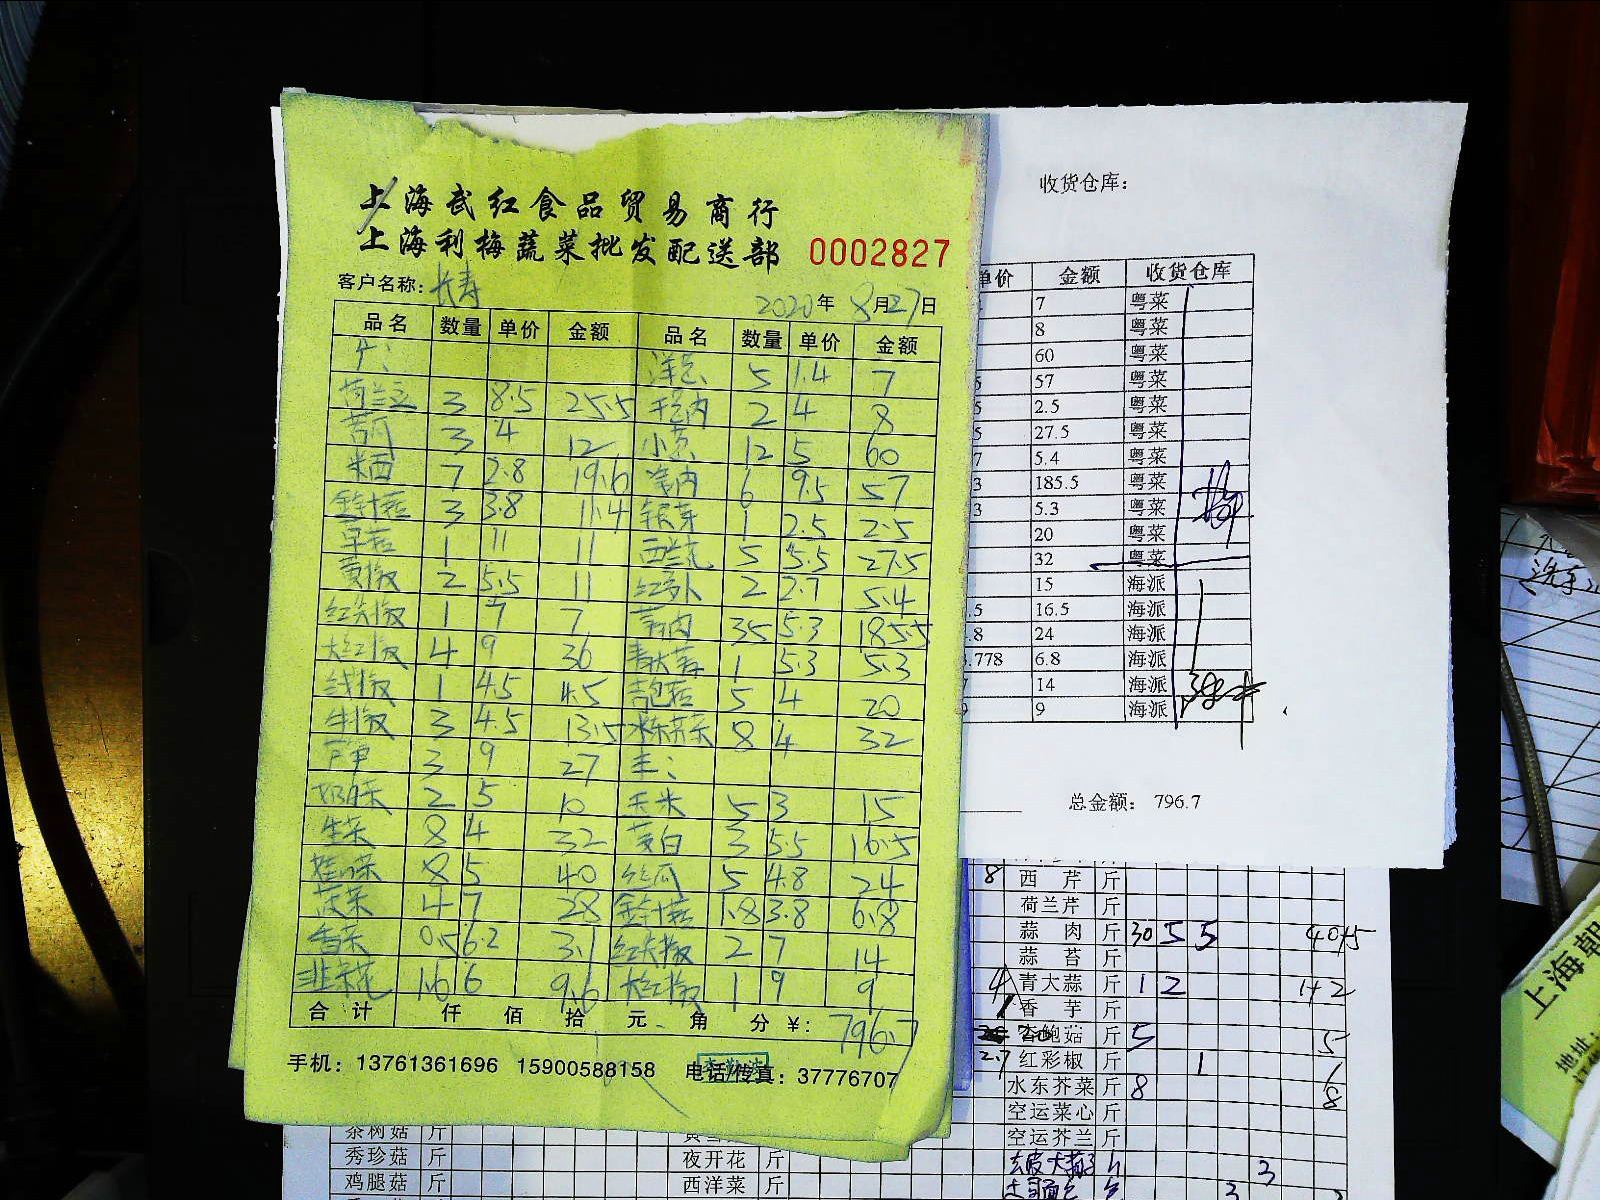 上海武红食品贸易商行
上海利梅蔬菜批发配送部 0002827
客户名称：长寿
2020年 8月27日
品名 数量 单价 金额 品名 数量 单价 金额
洋芫 5 1.4 7
荷兰豆 3 8.5 25.5 2 4 8
3 4 12 小芫 12 5 60
米西 7 2.8 19.6 6 9.5 57
金针菇 3 3.8 11.4 银芽 1 2.5 2.5
草菇 1 11 11 西兰花 5 5.5 27.5
黄椒 2 5.5 11 红萝卜 2 2.7 5.4
红尖椒 1 7 7 蒜肉 35 5.3 185.5
大红椒 4 9 36 青大蒜 1 5.3 5.3
线椒 1 4.5 4.5 杏鲍菇 5 4 20
牛椒 3 4.5 13.5 水东芥菜 8 4 32
芦笋 3 9 27
奶白菜 2 5 10 玉米 5 3 15
生菜 8 4 32 茭白 3 5.5 16.5
娃娃菜 8 5 40 丝瓜 5 4.8 24
菠菜 4 7 28 金针菇 1.8 3.8 6.8
香菜 0.5 6.2 3.1 红尖椒 2 7 14
韭菜花 1.6 6 9.6 大红椒 1 9 9
合计 仟 佰 拾 元 角 分 ¥: 796.7
手机：13761361696 15900588158 电话/传真：37776707
收货仓库：
单价 金额 收货仓库
7 粤菜
8 粤菜
60 粤菜
57 粤菜
2.5 粤菜
27.5 粤菜
5.4 粤菜
185.5 粤菜
5.3 粤菜
20 粤菜
32 粤菜
15 海派
.5 16.5 海派
.8 24 海派
3.778 6.8 海派
14 海派
9 海派
总金额： 796.7
8 西芹 斤
荷兰芹 斤
蒜肉 斤 30 5 5 40+5
蒜苔 斤
青大蒜 斤 1 2 1+2
香芋 斤
杏鲍菇 斤 5 5
2.7 红彩椒 斤 1 1
水东芥菜 斤 8 8
空运菜心 斤
空运芥兰 斤
3
茶树菇 斤
秀珍菇 斤 夜开花 斤
鸡腿菇 斤 西洋菜 斤
上海韩